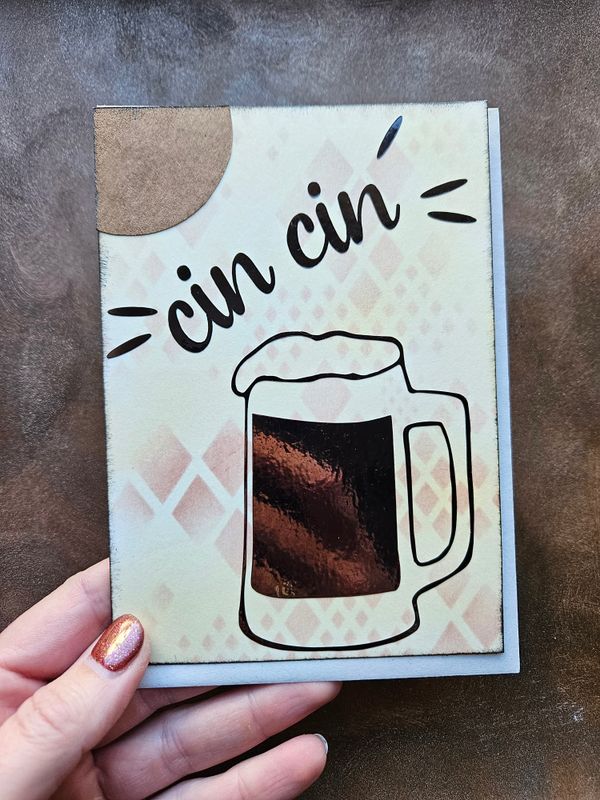 cin cin